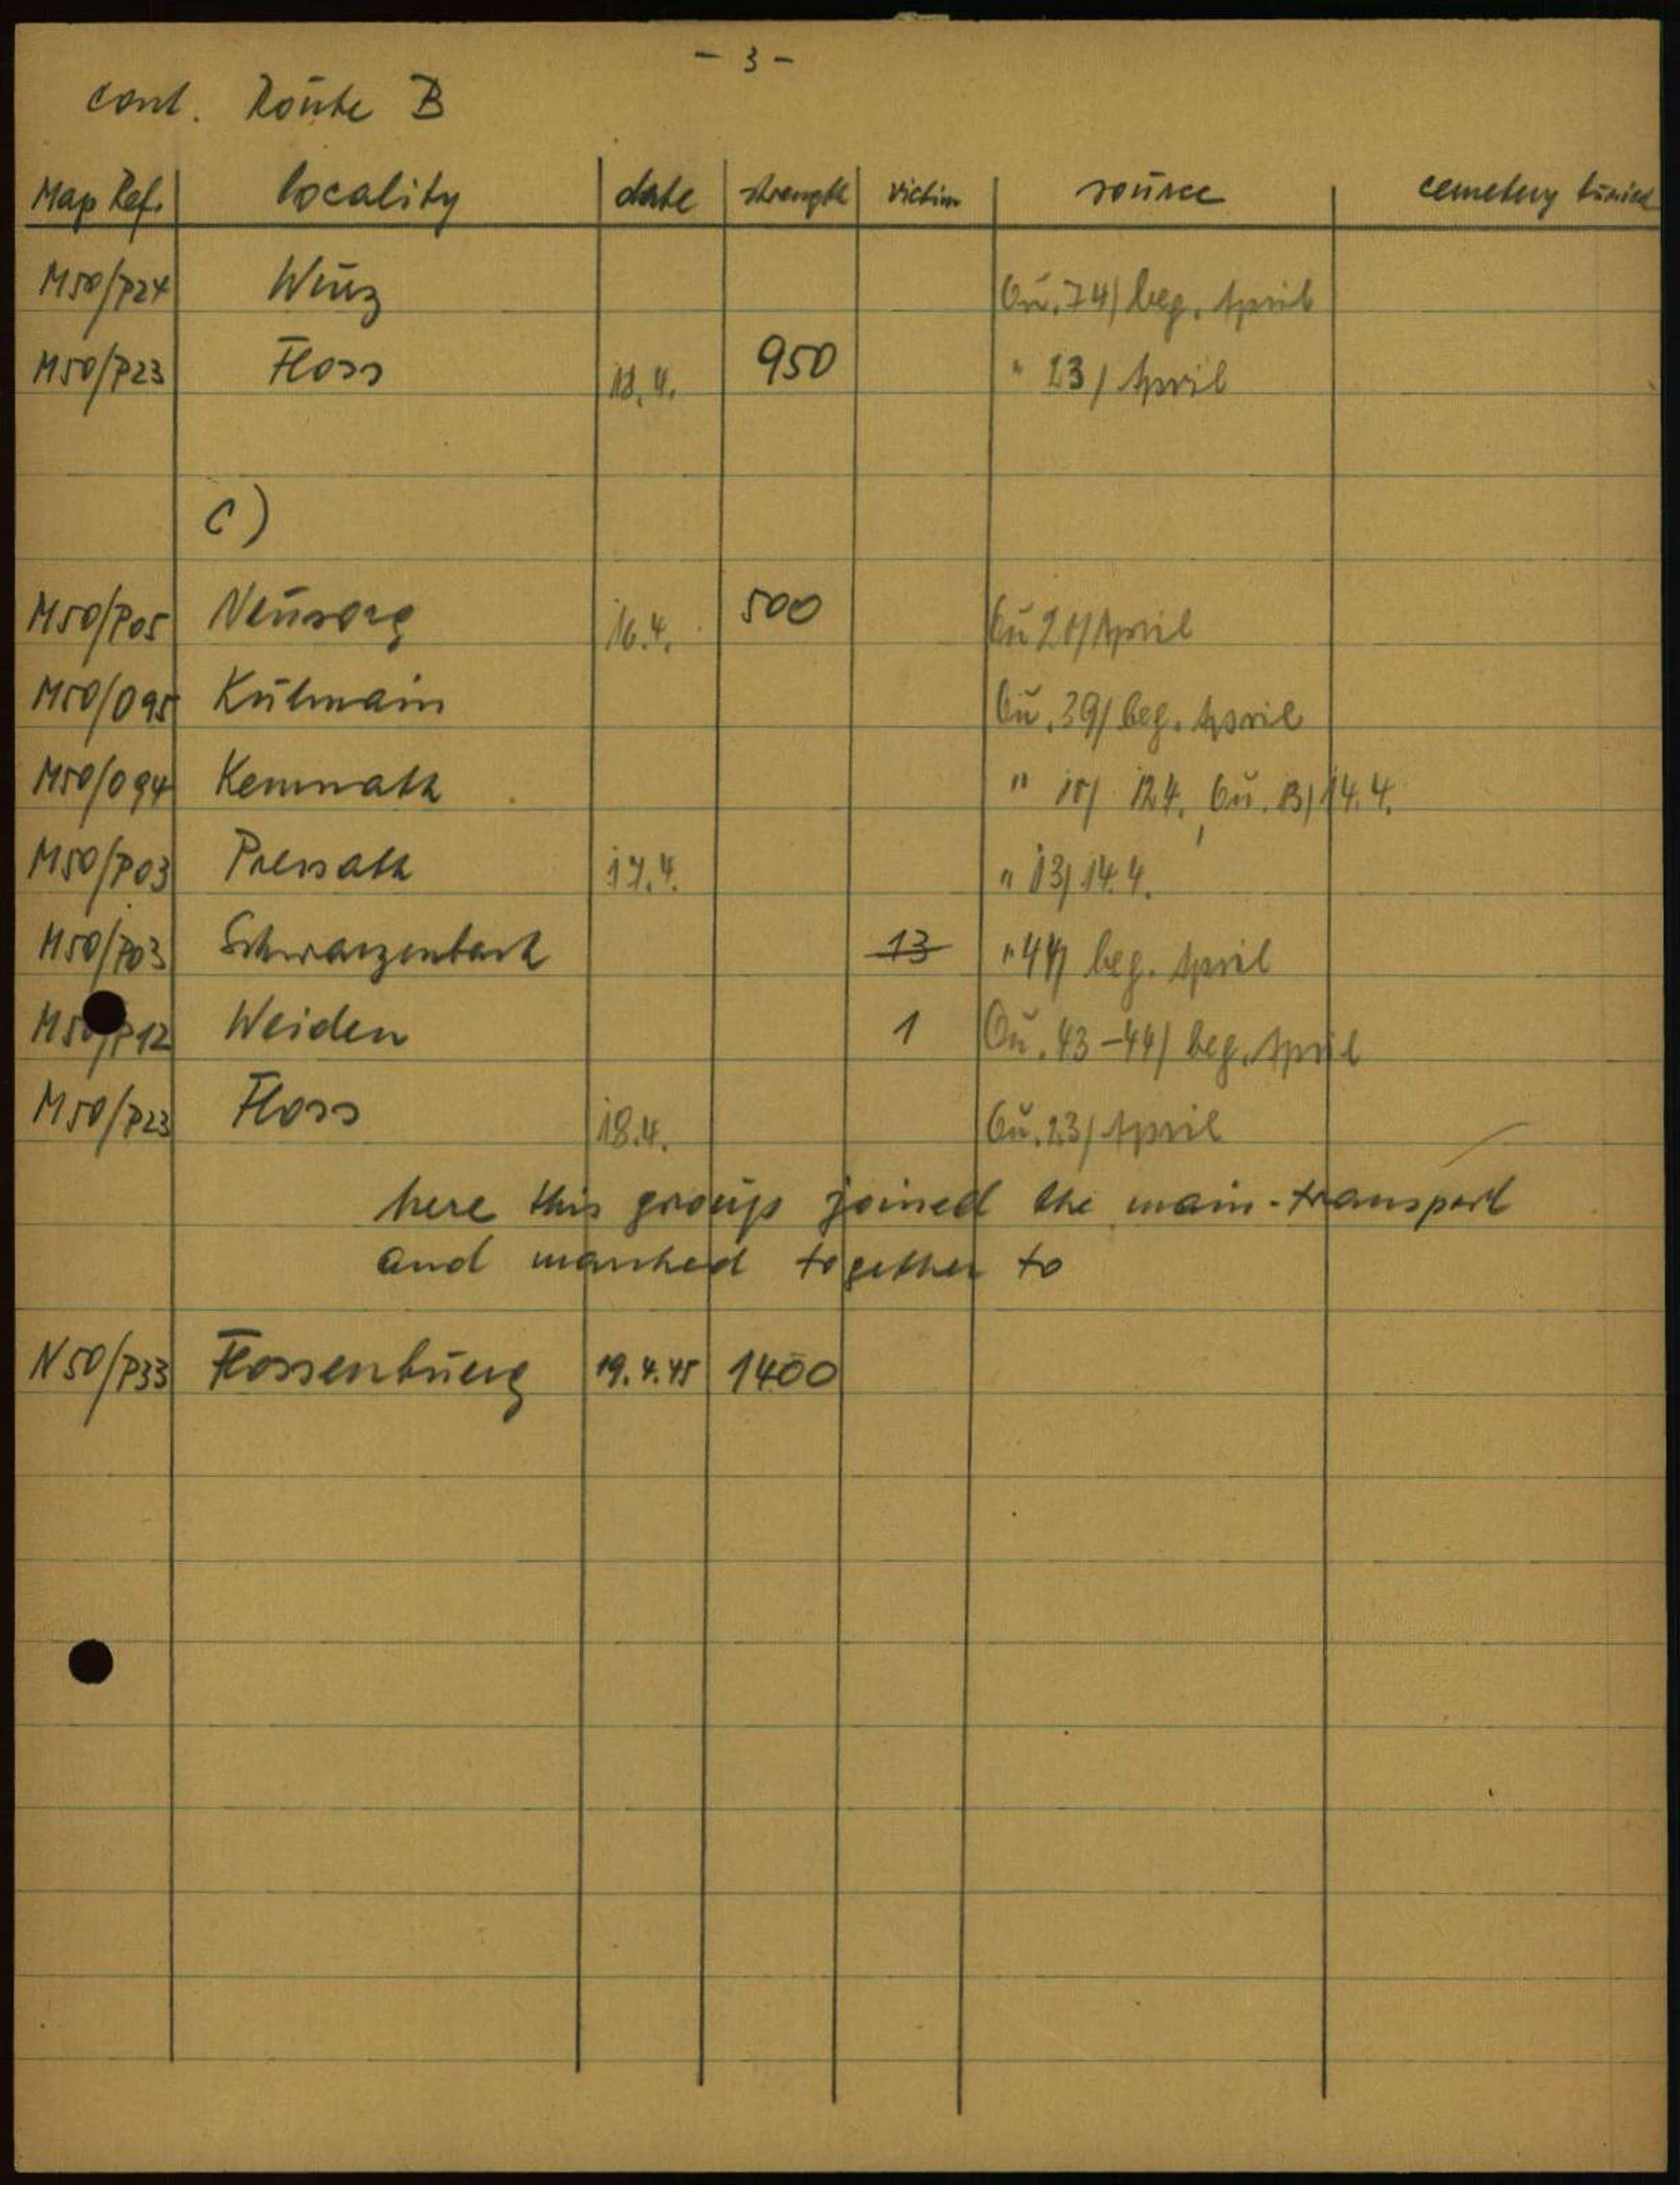 - 3 -
cont. Route B
Map Ref. locality date strength victim source cemetery buried
M50/P24 Wurz Qu. 74/ beg. April
M50/P23 Floss 18.4. 950 " 23/ April
C)
M50/P05 Neusorg 16.4. 500 Qu /April
M50/O95 Kulmain Qu. 39/ beg. April
M50/O94 Kemnath " 12.4., Qu. 13/ 14.4.
M50/P03 Pressath 17.4. " 13/ 14.4.
M50/P03 Schwarzenbach 13 " 44/ beg. April
M50/P12 Weiden 1 Qu. 43-44/ beg. April
M50/P23 Floss 18.4. Qu. 23/ April
here this group joined the main-transport
and marched together to
N50/P33 Flossenburg 19.4.45 1400